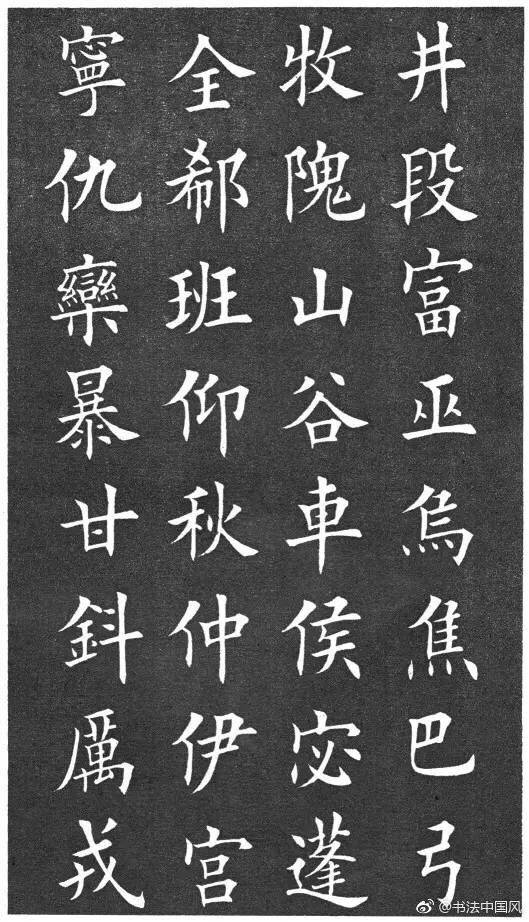 井段富巫烏焦巴弓
牧隗山谷車侯宓蓬
全郗班仰秋仲伊宫
寧仇欒暴甘鈄厲戎
@书法中国风